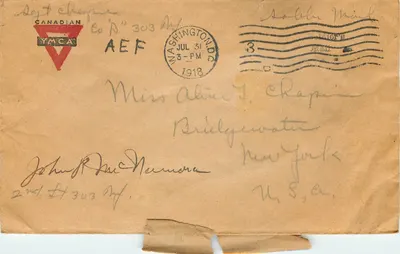 Sgt Chapin
Co "D" 303 Inf
Soldier Mail
CANADIAN
YMCA
AEF
WASHINGTON, D.C.
JUL 31
3-PM
1918
3
Miss Alice I. Chapin
Bridgewater
New York
U.S.A.
John R McNamara
2nd Lt 303 Inf.